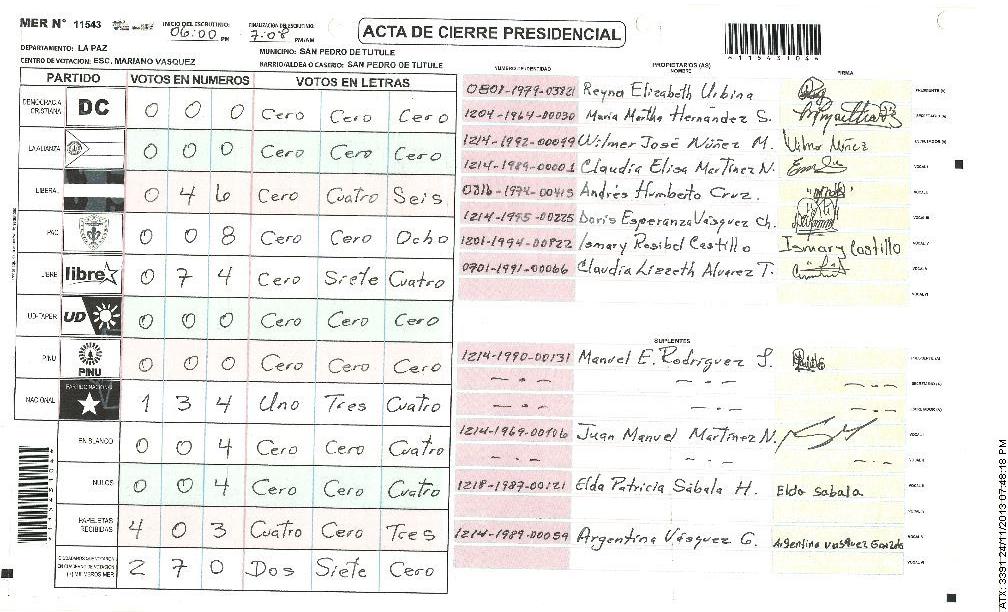 MER N° 11543
INICIO DEL ESCRUTINIO: 06:00 PM
FINALIZACION DEL ESCRUTINIO: 7:08 PM/AM
ACTA DE CIERRE PRESIDENCIAL
DEPARTAMENTO: LA PAZ
MUNICIPIO: SAN PEDRO DE TUTULE
CENTRO DE VOTACION: ESC. MARIANO VASQUEZ
BARRIO/ALDEA O CASERIO: SAN PEDRO DE TUTULE
PARTIDO VOTOS EN NUMEROS VOTOS EN LETRAS
DEMOCRACIA CRISTIANA DC 0 0 0 Cero Cero Cero
LA ALIANZA 0 0 0 Cero Cero Cero
LIBERAL 0 4 6 Cero Cuatro Seis
PAC 0 0 8 Cero Cero Ocho
LIBRE libre 0 7 4 Cero Siete Cuatro
UD-FAPER UD 0 0 0 Cero Cero Cero
PINU PINU 0 0 0 Cero Cero Cero
NACIONAL PARTIDO NACIONAL 1 3 4 Uno Tres Cuatro
EN BLANCO 0 0 4 Cero Cero Cuatro
NULOS 0 0 4 Cero Cero Cuatro
PAPELETAS RECIBIDAS 4 0 3 Cuatro Cero Tres
2 7 0 Dos Siete Cero
NUMERO DE IDENTIDAD PROPIETARIOS (AS) NOMBRE FIRMA
0801-1979-03821 Reyna Elizabeth Urbina PRESIDENTE (A)
1204-1964-00030 Maria Martha Hernández S. SECRETARIO (A)
1214-1992-00099 Wilmer José Núñez M. Wilmer Núñez ESCRUTADOR (A)
1214-1989-00001 Claudia Elisa Martínez N. VOCAL I
0816-1974-00415 Andrés Humberto Cruz. VOCAL II
1214-1995-00225 Doris Esperanza Vásquez Ch. VOCAL III
1201-1994-00822 Ismary Rosibel Castillo Ismary Castillo
0701-1991-00066 Claudia Lizzeth Alvarez T.
VOCAL VI
SUPLENTES
1214-1990-00131 Manuel E. Rodríguez S. PRESIDENTE (A)
— . — — . — — . — SECRETARIO (A)
— . — — . — — . — ESCRUTADOR (A)
1214-1969-00106 Juan Manuel Martínez N. VOCAL I
— . — — . — — . — VOCAL II
1218-1987-00121 Elda Patricia Sabala H. Elda Sabala
1214-1989-00059 Argentina Vásquez G. Argentina Vasquez
VOCAL VI
41154310 4 6
ATX: 3391 24/11/2013 07:48:18 PM